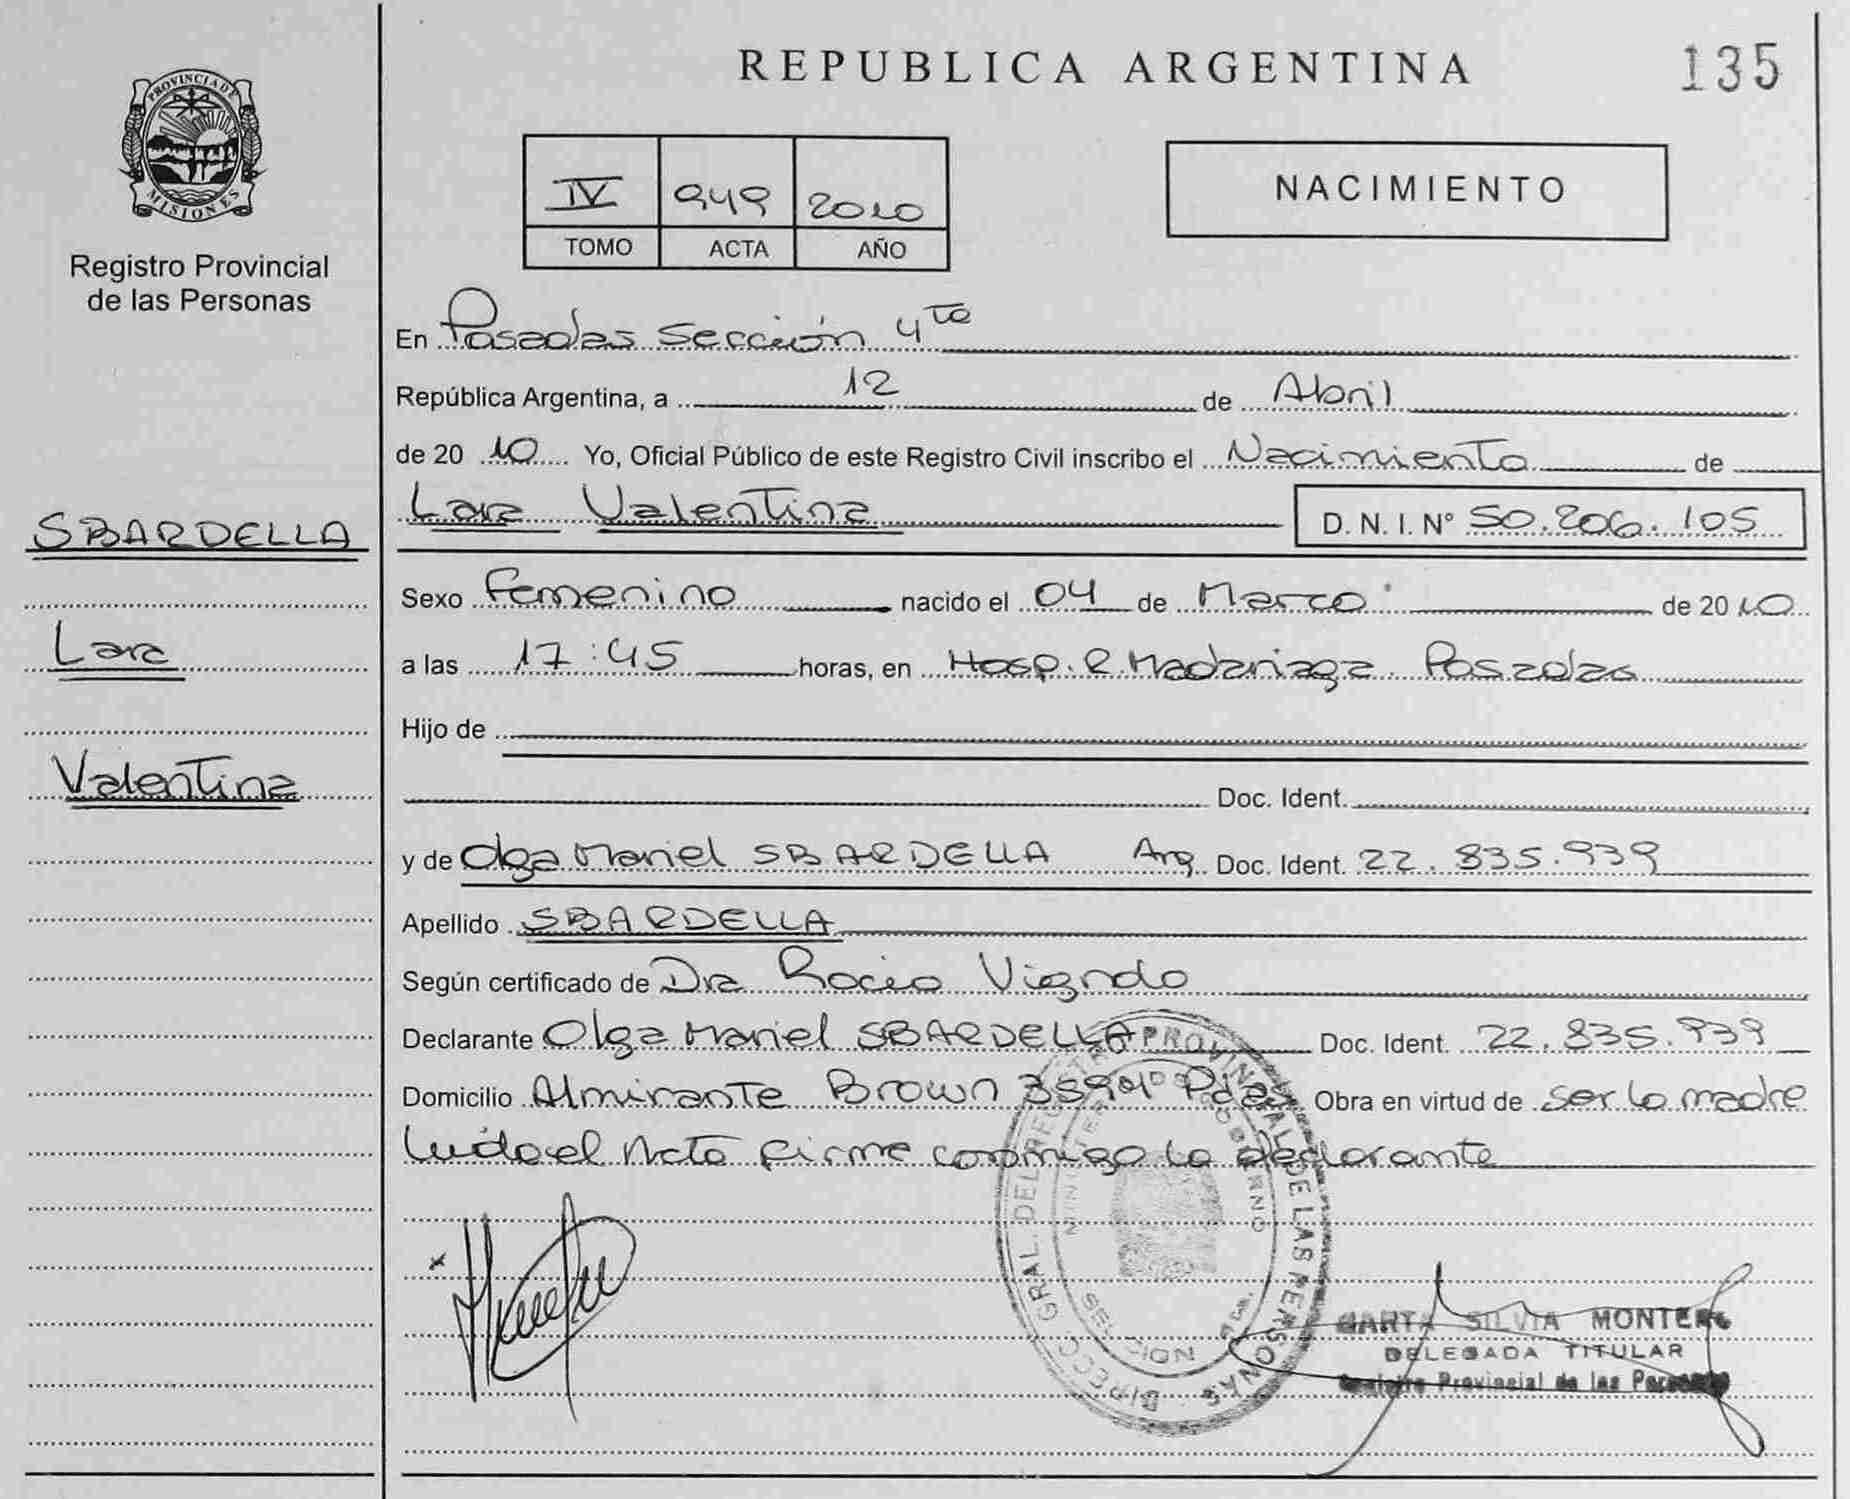 REPUBLICA ARGENTINA
135
PROVINCIA DE MISIONES
Registro Provincial
de las Personas
IV 949 2010
TOMO ACTA AÑO
NACIMIENTO
En Posadas Sección 4ta
República Argentina, a 12 de Abril
de 2010 Yo, Oficial Público de este Registro Civil inscribo el Nacimiento de
Lara Valentina D. N. I. N° 50.206.105
SBARDELLA
Lara
Valentina
Sexo Femenino nacido el 04 de Marzo de 2010
a las 17:45 horas, en Hosp. R. Madariaga. Posadas
Hijo de
Doc. Ident.
y de Olga Mariel SBARDELLA Arg. Doc. Ident. 22.835.939
Apellido SBARDELLA
Según certificado de Dra Rocio
Declarante Olga Mariel SBARDELLA Doc. Ident. 22.835.939
Domicilio Almirante Brown Pdas Obra en virtud de ser la madre
Leida el Acta firma conmigo la declarante
DIRECC. GRAL. DEL REGISTRO PROVINCIAL DE LAS PERSONAS
MARTA SILVIA MONTERO
DELEGADA TITULAR
Registro Provincial de las Personas